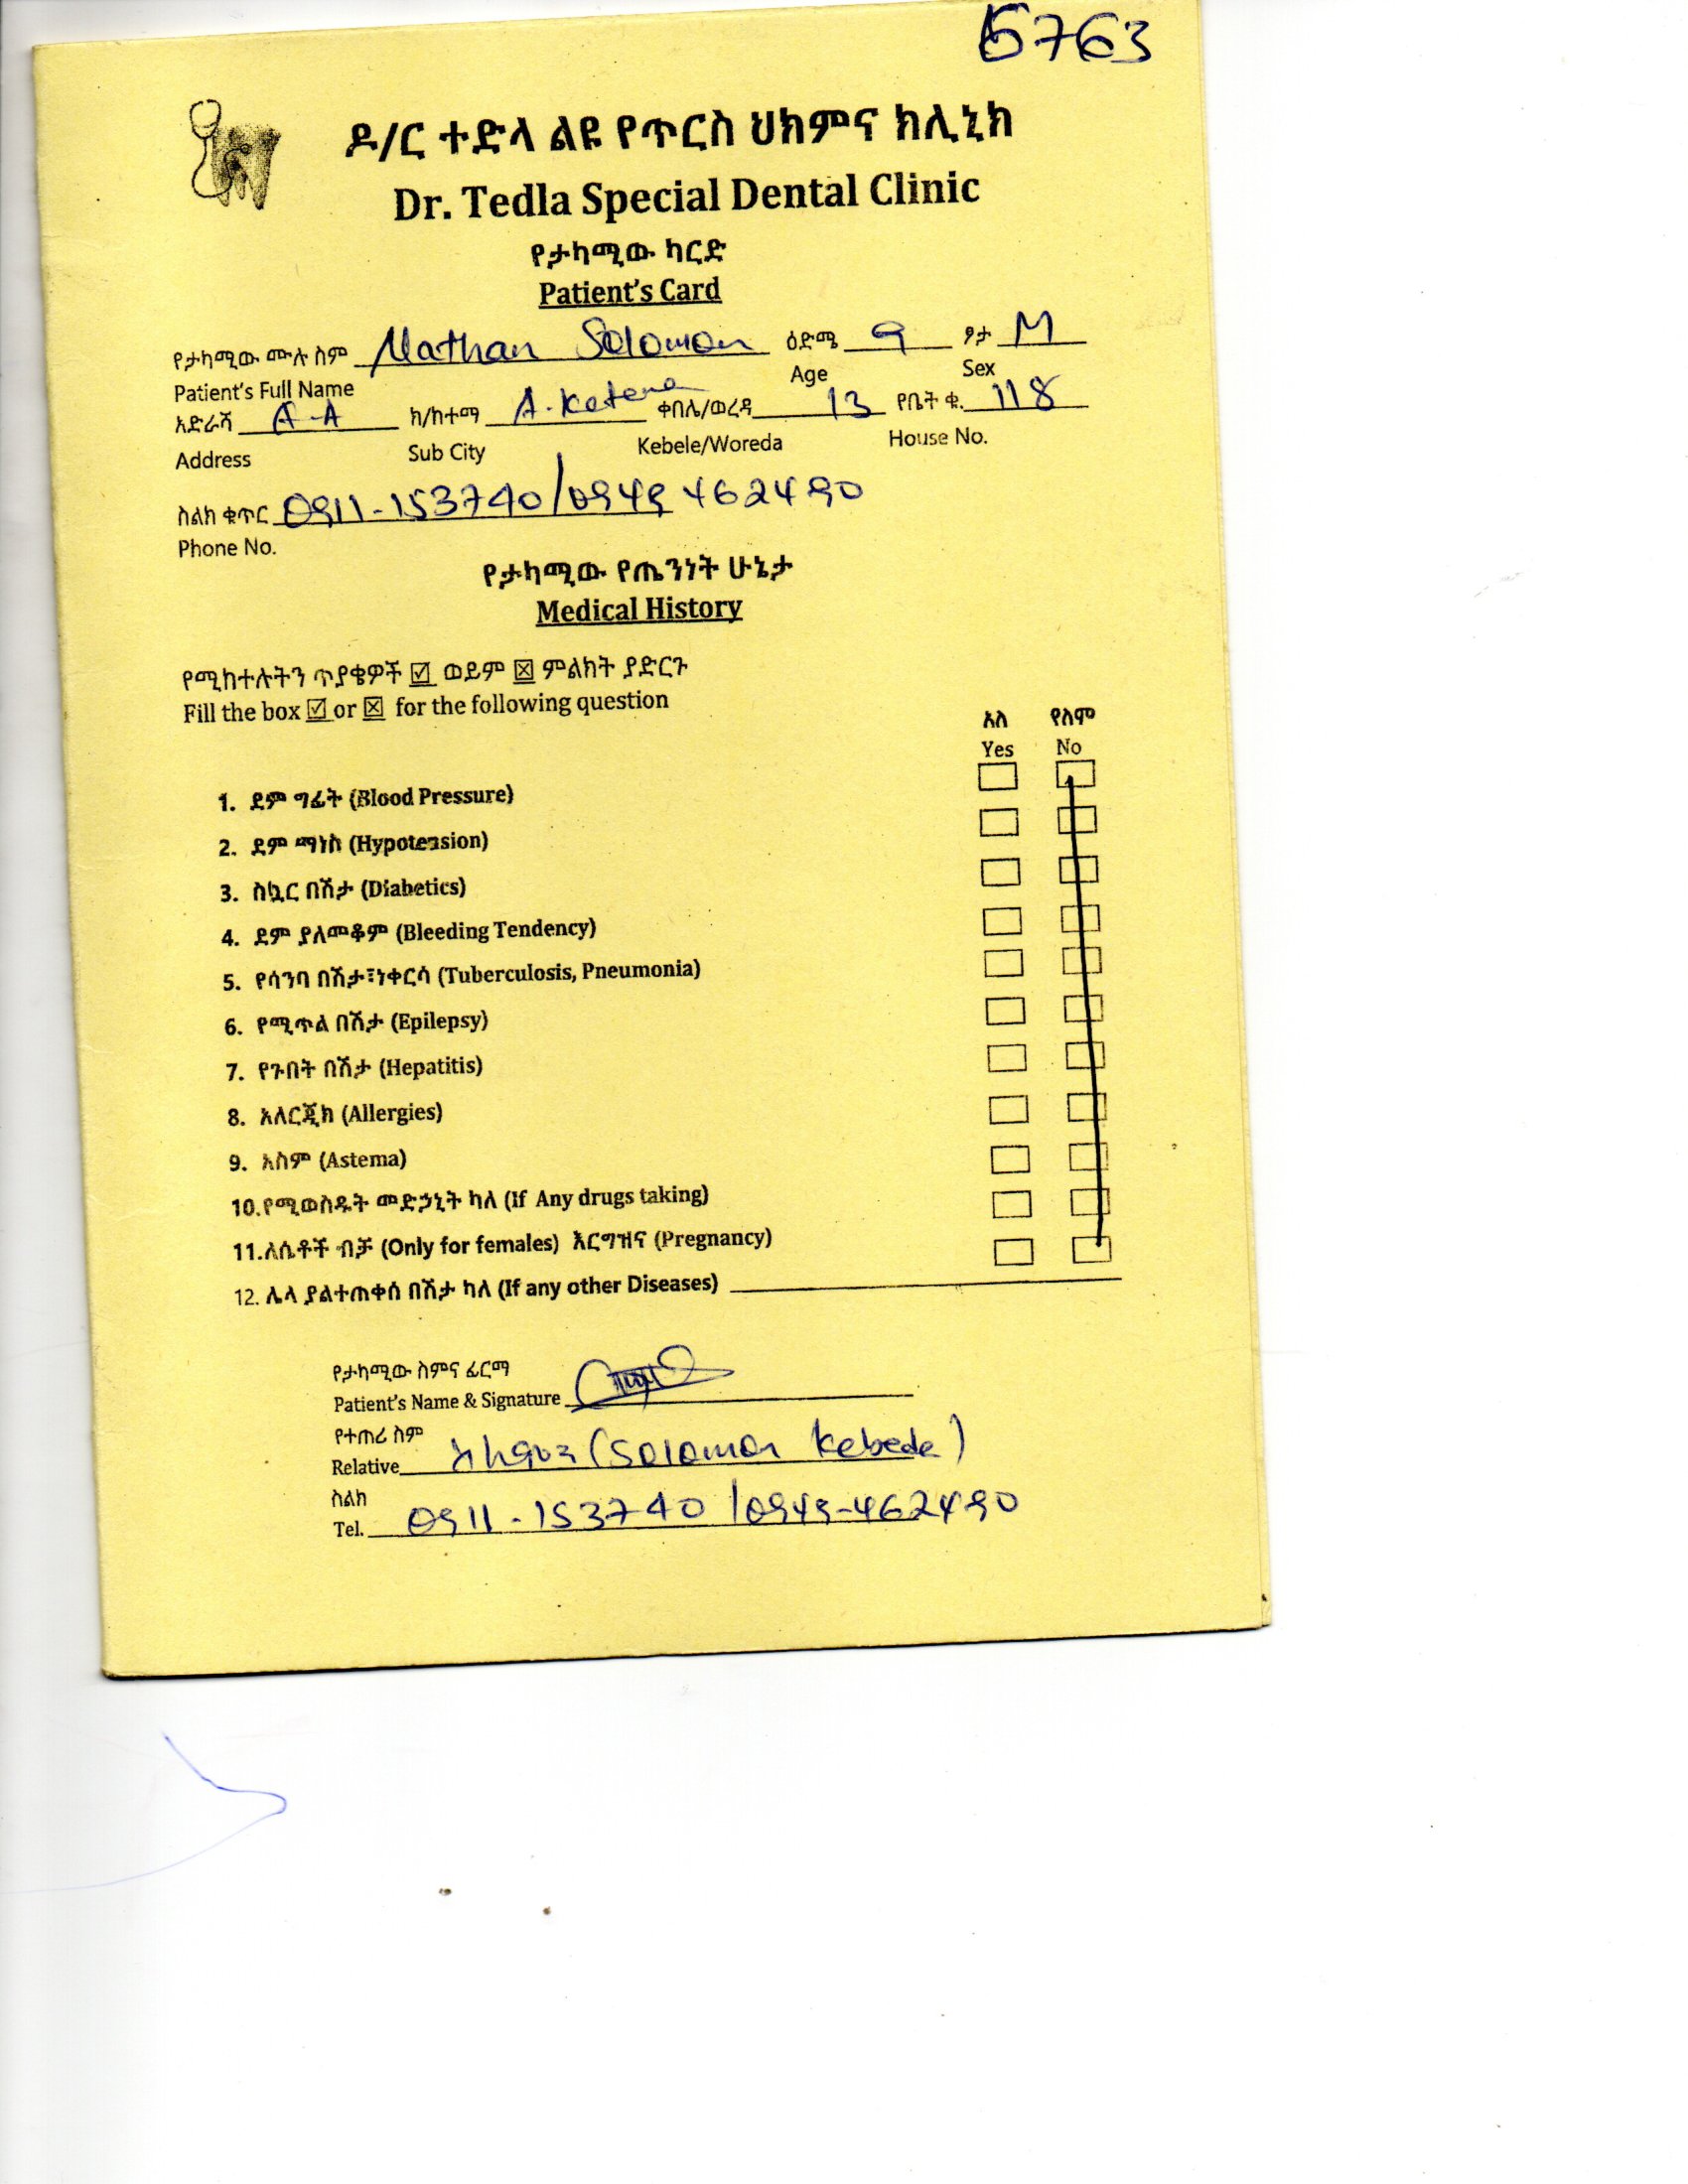 5763
ዶ/ር ተድላ ልዩ የጥርስ ህክምና ክሊኒክ
Dr. Tedla Special Dental Clinic
የታካሚው ካርድ
Patient's Card
የታካሚው ሙሉ ስም Nathan Solomon ዕድሜ 9 ፆታ M
Patient's Full Name Age Sex
አድራሻ A-A ክ/ከተማ A. Ketema ቀበሌ/ወረዳ 13 የቤት ቁ. 118
Address Sub City Kebele/Woreda House No.
ስልክ ቁጥር 0911-153740/0949 462490
Phone No.
የታካሚው የጤንነት ሁኔታ
Medical History
የሚከተሉትን ጥያቄዎች ☑ ወይም ☒ ምልክት ያድርጉ
Fill the box ☑ or ☒ for the following question
አለ የለም
Yes No
1. ደም ግፊት (Blood Pressure)
2. ደም ማነስ (Hypotension)
3. ስኳር በሽታ (Diabetics)
4. ደም ያለመቆም (Bleeding Tendency)
5. የሳንባ በሽታ፣ነቀርሳ (Tuberculosis, Pneumonia)
6. የሚጥል በሽታ (Epilepsy)
7. የጉበት በሽታ (Hepatitis)
8. አለርጂክ (Allergies)
9. አስም (Astema)
10.የሚወስዱት መድኃኒት ካለ (If Any drugs taking)
11.ለሴቶች ብቻ (Only for females) እርግዝና (Pregnancy)
12. ሌላ ያልተጠቀሰ በሽታ ካለ (If any other Diseases)
የታካሚው ስምና ፊርማ
Patient's Name & Signature
የተጠሪ ስም
Relative (Solomon Kebede)
ስልክ
Tel. 0911-153740 /0949-462490